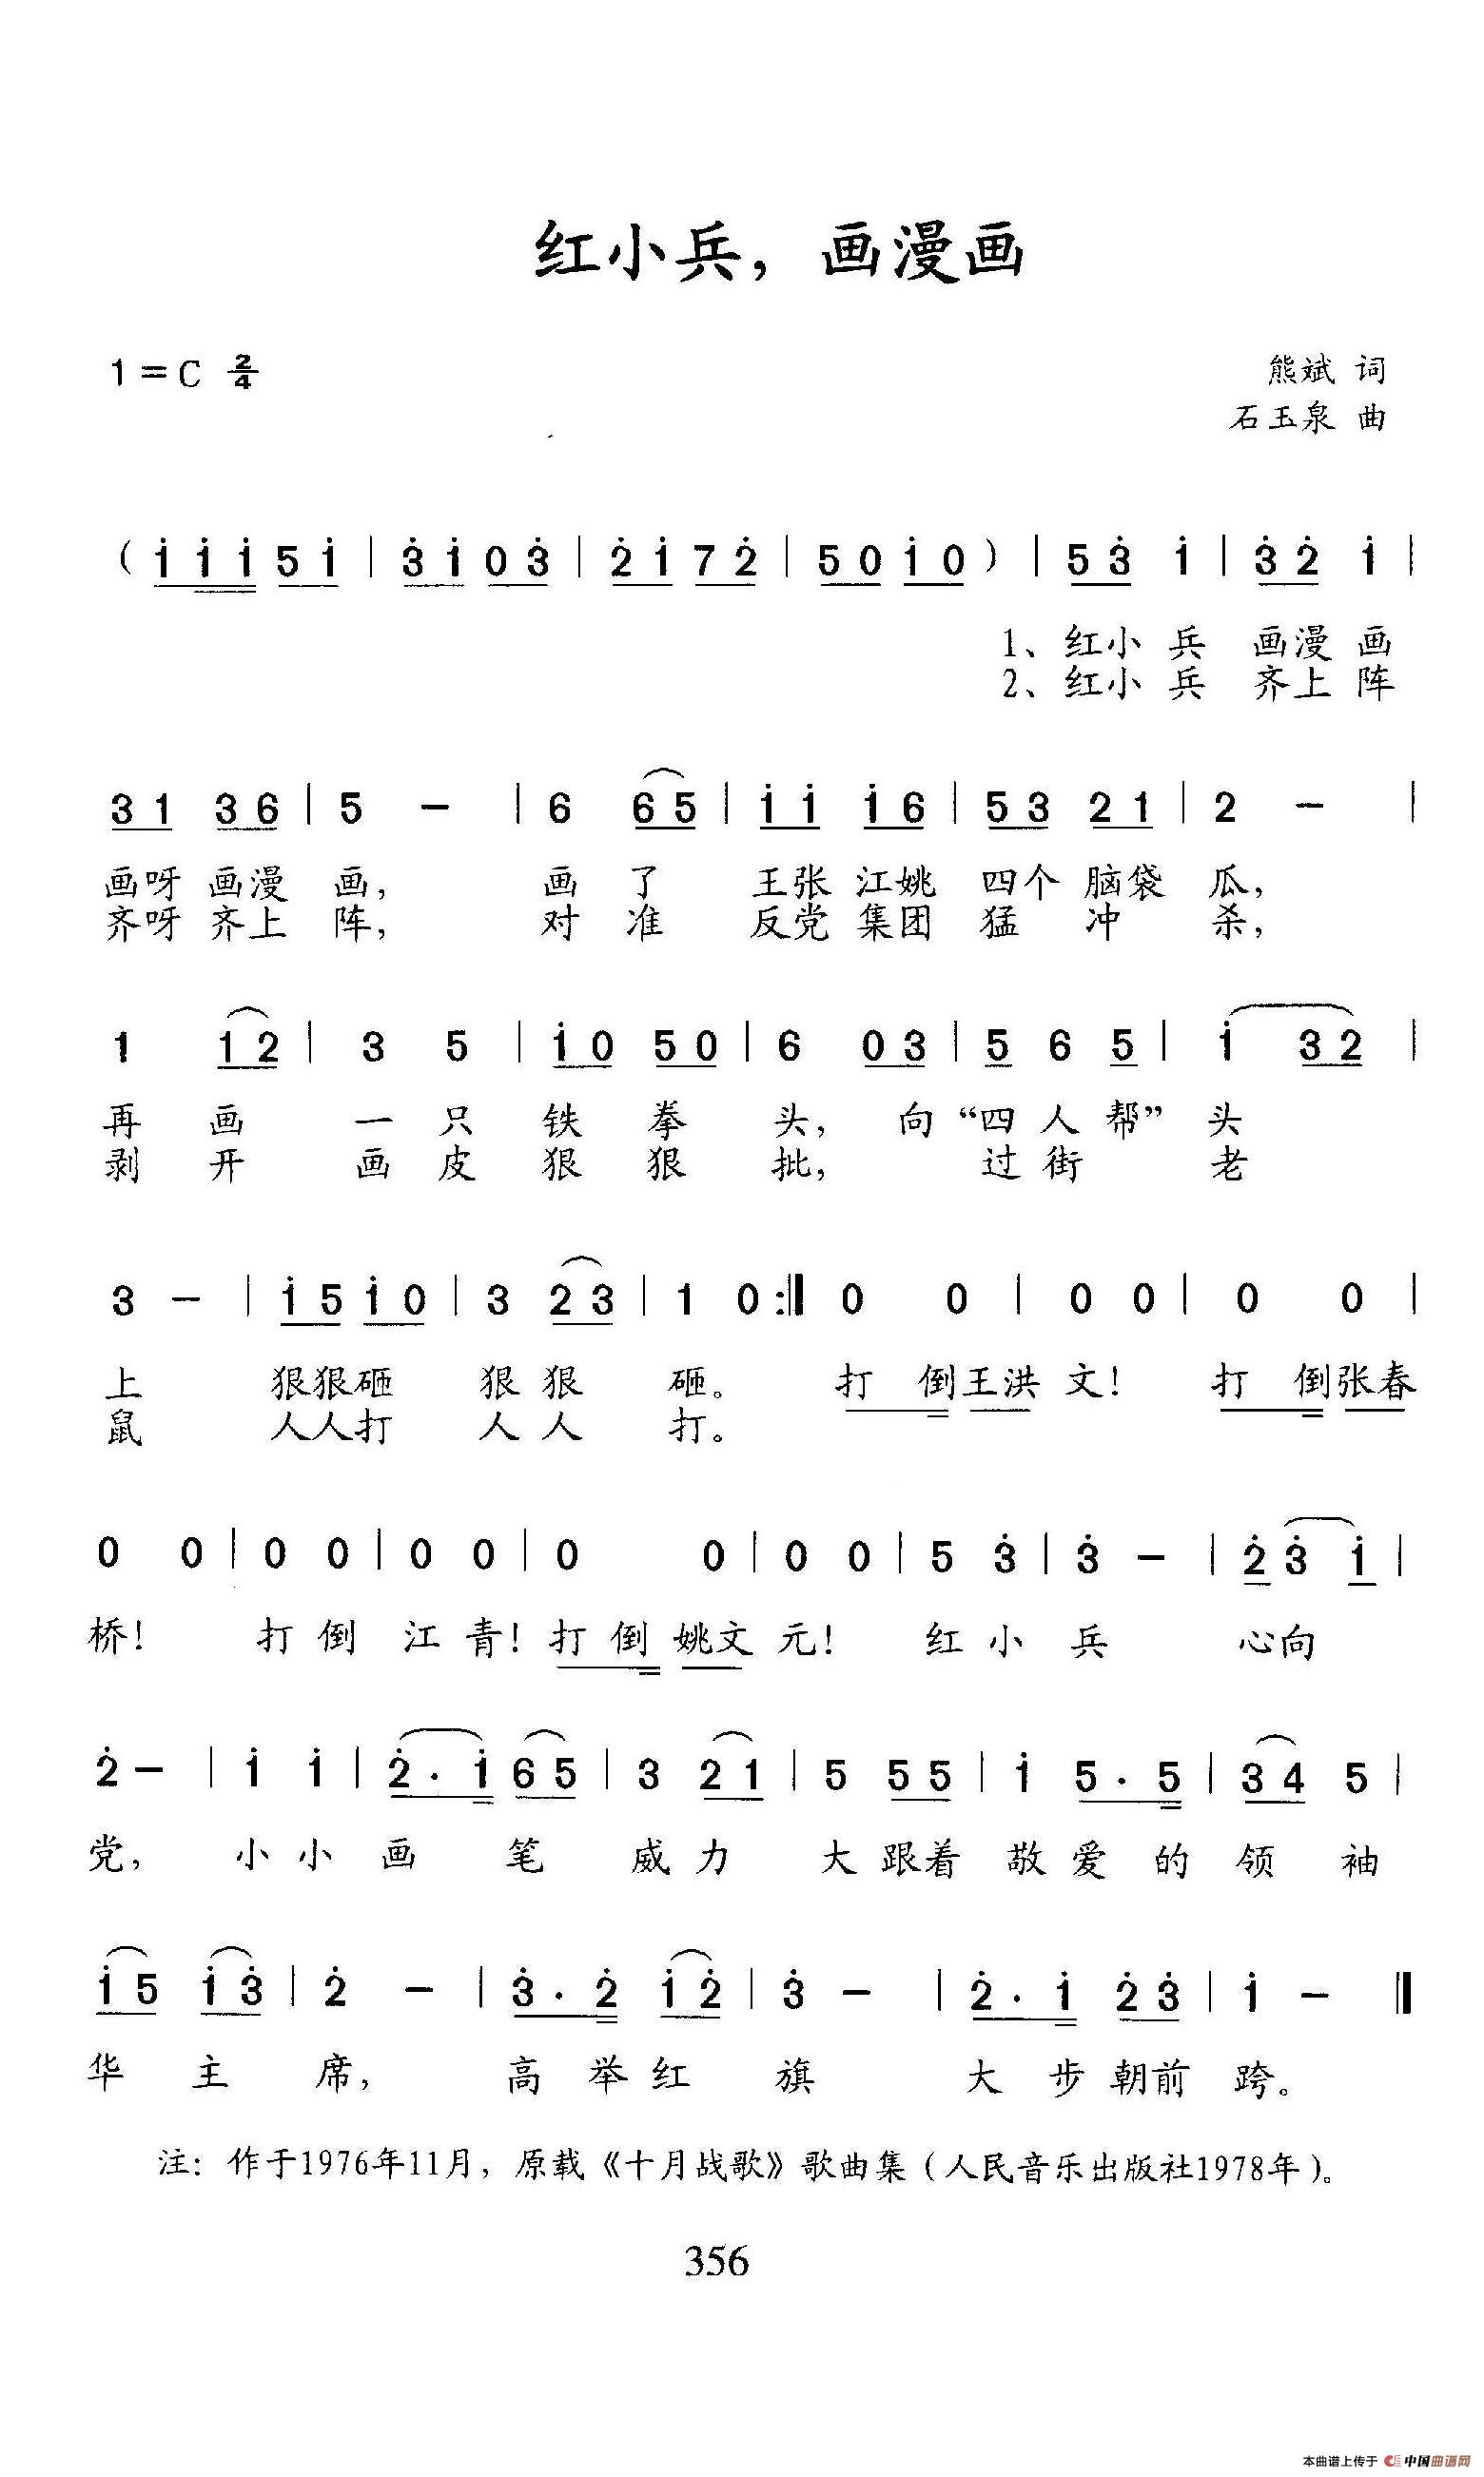 红小兵，画漫画
1=C 2/4
熊斌 词
石玉泉 曲
( i i i 5 i | 3 i 0 3 | 2 i 7 2 | 5 0 i 0 ) | 5 3 i | 3 2 i |
1、红小 兵 画漫 画
2、红小 兵 齐上 阵
3 1 3 6 | 5 - | 6 6 5 | i i i 6 | 5 3 2 1 | 2 - |
画呀 画漫 画， 画 了 王张 江姚 四个 脑袋 瓜，
齐呀 齐上 阵， 对 准 反党 集团 猛 冲 杀，
1 1 2 | 3 5 | i 0 5 0 | 6 0 3 | 5 6 5 | i 3 2 |
再 画 一 只 铁 拳 头， 向“四 人 帮”头
剥 开 画 皮 狠 狠 批， 过 街 老
3 - | i 5 i 0 | 3 2 3 | 1 0 :‖ 0 0 | 0 0 | 0 0 |
上 狠狠砸 狠 狠 砸。 打 倒王洪 文！ 打 倒张春
鼠 人人打 人 人 打。
0 0 | 0 0 | 0 0 | 0 0 | 0 0 | 5 3 | 3 - | 2 3 i |
桥！ 打 倒 江 青！打 倒 姚文 元！ 红 小 兵 心向
2 - | i i | 2 · i 6 5 | 3 2 1 | 5 5 5 | i 5 · 5 | 3 4 5 |
党， 小 小 画 笔 威 力 大 跟着 敬 爱 的 领 袖
i 5 i 3 | 2 - | 3 · 2 i 2 | 3 - | 2 · i 2 3 | i - ‖
华 主 席， 高 举 红 旗 大 步 朝前 跨。
注：作于1976年11月，原载《十月战歌》歌曲集（人民音乐出版社1978年）。
356
本曲谱上传于 中国曲谱网